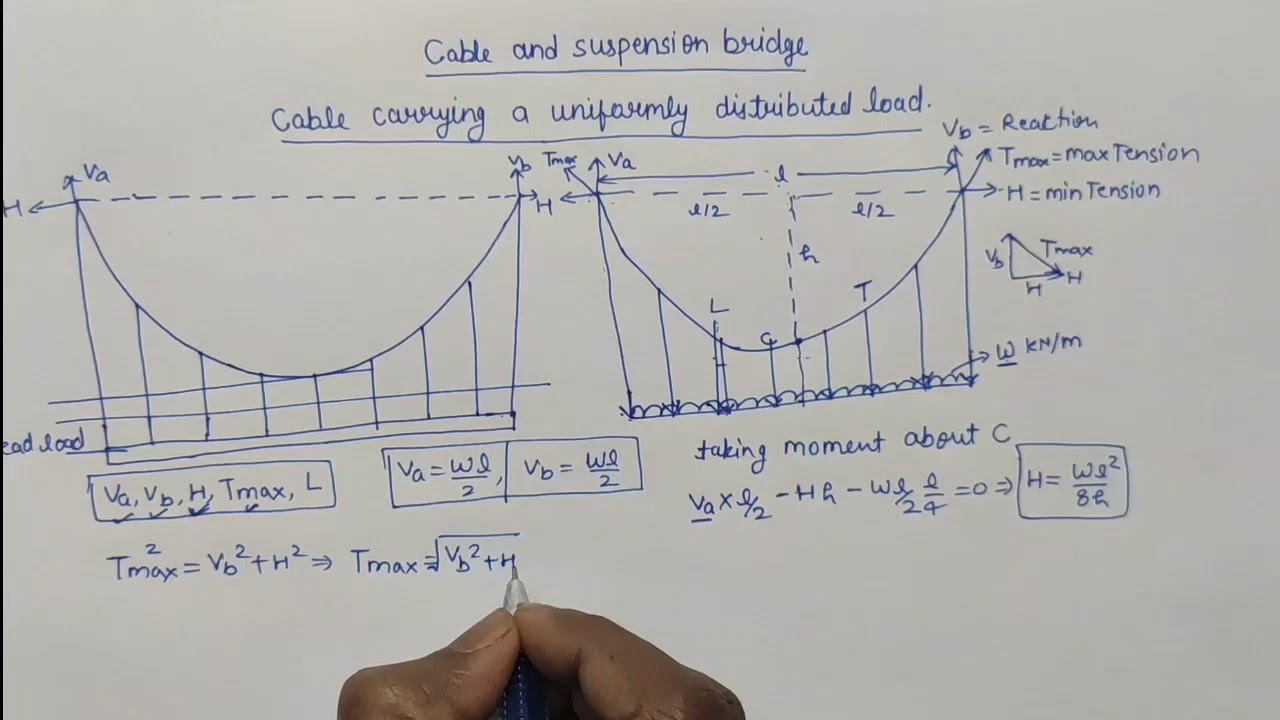 Cable and suspension bridge
Cable carrying a uniformly distributed load.
Va
Vb
H
H
Tmax
Va
l
Vb = Reaction
Tmax = max Tension
H = min Tension
l/2
l/2
h
Vb
Tmax
H
H
L
C
T
w kN/m
ead load
Va, Vb, H, Tmax, L
Va = wl/2, Vb = wl/2
taking moment about C
Va × l/2 - Hh - wl/2 l/4 = 0 ⇒ H = wl²/8h
Tmax² = Vb² + H² ⇒ Tmax = √Vb² + H